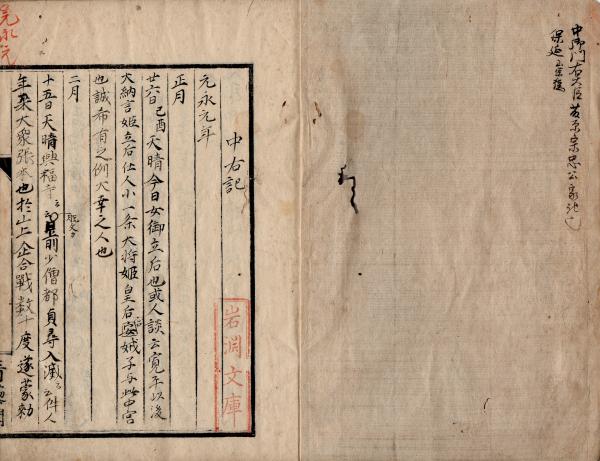 中御門右大臣藤原宗忠公家記也
保延
中右記
元永元年
正月
廿六日己酉天晴今日女御立后也或人談云寛平以後
大納言姫立后仕人小一条大将姫皇后娍子与此中宮
也誠希有之例大幸之人也
二月
十五日天晴興福寺前少僧都貞尋入滅云々件人
年来大衆張本也於山上企合戦数十度遂蒙勅
岩淵文庫
元永元